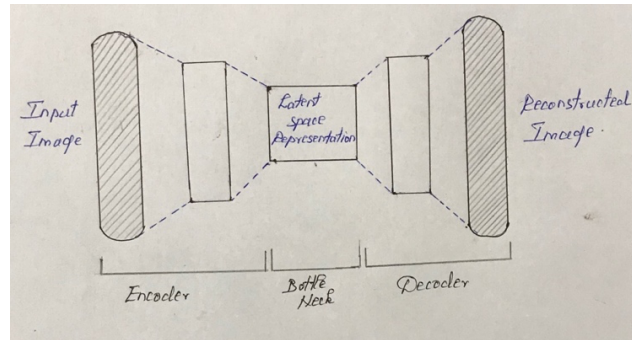 Input
Image
Latent
space
Representation
Reconstructed
Image.
Encoder
Bottle
Neck
Decoder